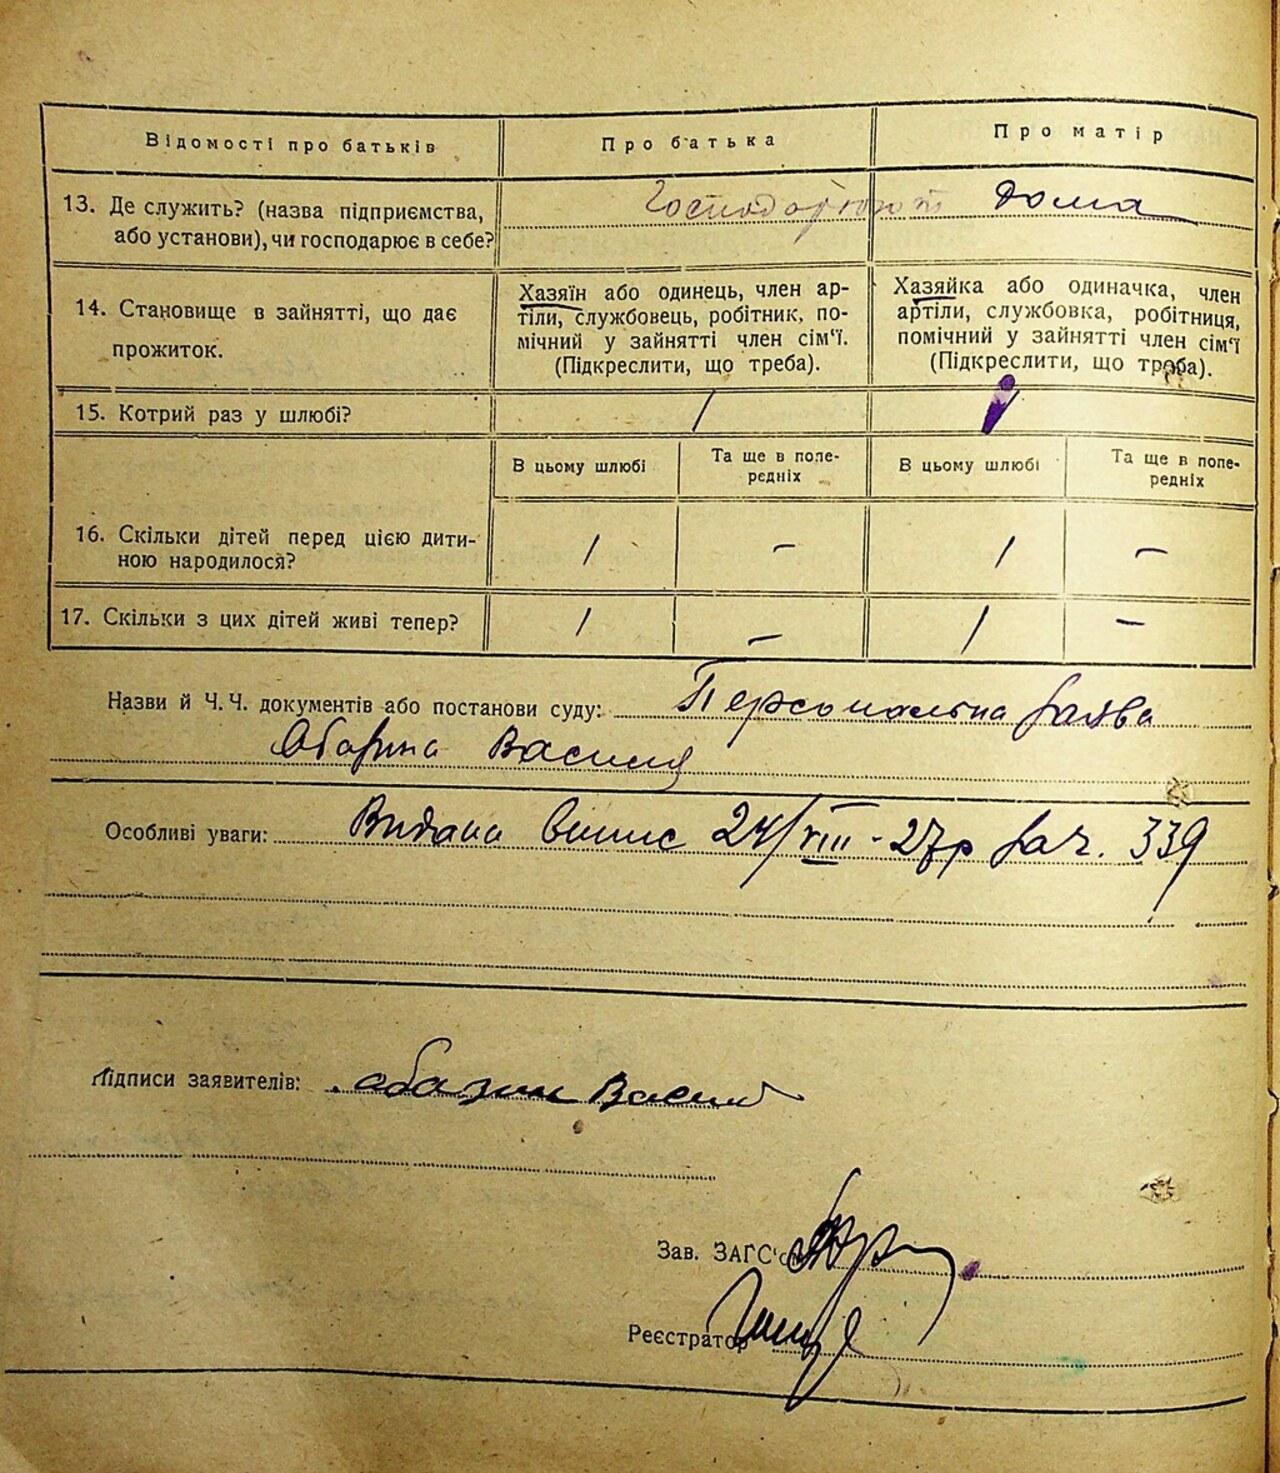 Відомості про батьків Про батька Про матір
13. Де служить? (назва підприємства, або установи), чи господарює в себе? Господарюют дома
14. Становище в зайнятті, що дає прожиток.
Хазяїн або одинець, член ар-
тіли, службовець, робітник, по-
мічний у зайнятті член сім'ї.
(Підкреслити, що треба).
Хазяйка або одиначка, член
артіли, службовка, робітниця,
помічний у зайнятті член сім'ї
(Підкреслити, що треба).
15. Котрий раз у шлюбі? / /
В цьому шлюбі Та ще в попе-
редніх В цьому шлюбі Та ще в попе-
редніх
16. Скільки дітей перед цією дити-
ною народилося? / – / –
17. Скільки з цих дітей живі тепер? / – / –
Назви й Ч. Ч. документів або постанови суду: Персональна заява
Василя
Особливі уваги: Видана випис 24/VIII - 27р зач. 339
Підписи заявителів: Абазин Васил
Зав. ЗАГС'ом
Реєстратор